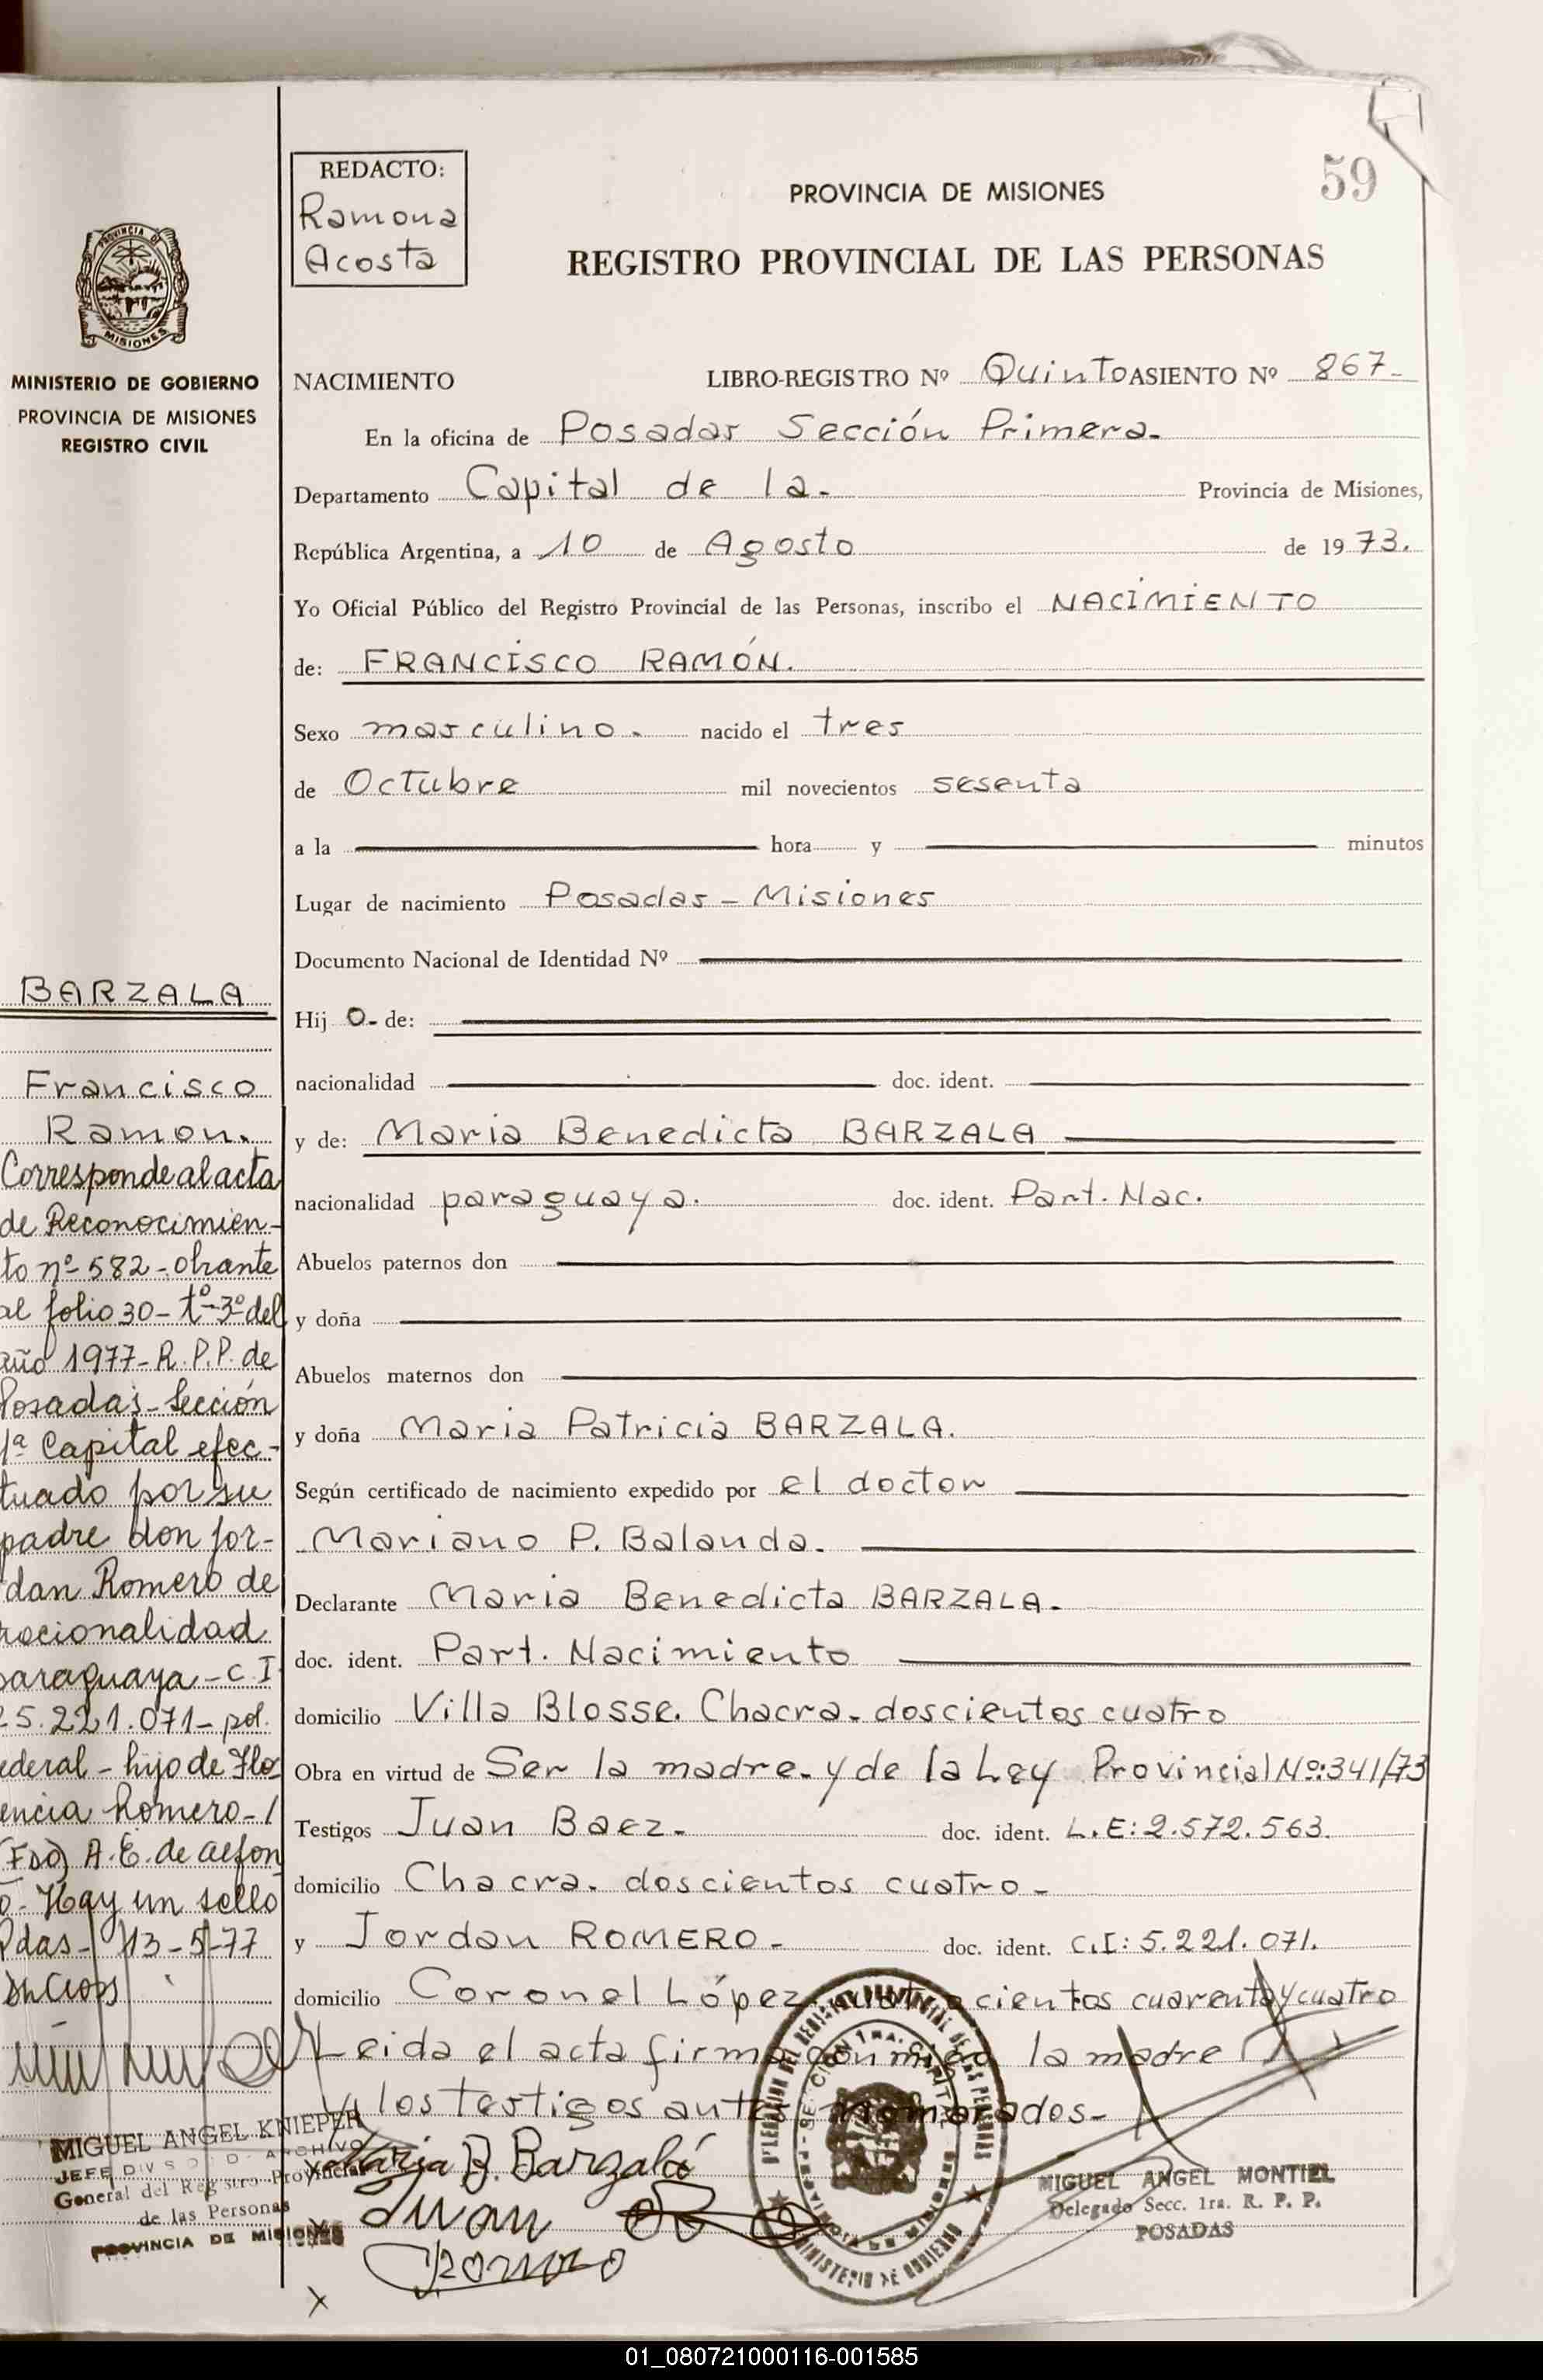 59
REDACTO:
Ramona
Acosta
PROVINCIA DE MISIONES
REGISTRO PROVINCIAL DE LAS PERSONAS
PROVINCIA DE
MISIONES
MINISTERIO DE GOBIERNO
PROVINCIA DE MISIONES
REGISTRO CIVIL
BARZALA
Francisco
Ramon.
Corresponde al acta
de Reconocimien-
to nº 582 - obrante
al folio 30 - tº - 3º del
año 1977 - R.P.P. de
Posadas - Sección
1ª Capital efec-
tuado por su
padre don Jor-
dan Romero de
nacionalidad
paraguaya - C I
5.221.071 - pol.
ederal - hijo de Flo
encia Romero - /
(FDO) A. E. de Alfon
o. Hay un sello
Pdas - 13-5-77
MIGUEL ANGEL KNIEPER
JEFE DIVS D ARCHIVO
General del Registro Provincial
de las Personas
PROVINCIA DE MISIONES
NACIMIENTO LIBRO-REGISTRO Nº Quinto ASIENTO Nº 867-
En la oficina de Posadas Sección Primera-
Departamento Capital de la- Provincia de Misiones,
República Argentina, a 10 de Agosto de 1973.
Yo Oficial Público del Registro Provincial de las Personas, inscribo el NACIMIENTO
de: FRANCISCO RAMÓN.
Sexo masculino. nacido el tres
de Octubre mil novecientos sesenta
a la hora y minutos
Lugar de nacimiento Posadas - Misiones
Documento Nacional de Identidad Nº
Hij o- de:
nacionalidad doc. ident.
y de: Maria Benedicta BARZALA
nacionalidad paraguaya. doc. ident. Part. Nac.
Abuelos paternos don
y doña
Abuelos maternos don
y doña Maria Patricia BARZALA.
Según certificado de nacimiento expedido por el doctor
Mariano P. Balanda.
Declarante Maria Benedicta BARZALA.
doc. ident. Part. Nacimiento
domicilio Villa Blosse. Chacra. doscientos cuatro
Obra en virtud de Ser la madre. y de la Ley Provincial Nº:341/73
Testigos Juan Baez. doc. ident. L.E: 2.572.563.
domicilio Chacra. doscientos cuatro-
y Jordan ROMERO- doc. ident. C.I: 5.221.071.
domicilio Coronel López cuatrocientos cuarenta y cuatro
Leida el acta firma conmigo la madre
y los testigos ante nombrados-
Maria B. Barzala
Juan
Romero
MIGUEL ANGEL MONTIEL
Delegado Secc. 1ra. R. P. P.
POSADAS
01_080721000116-001585